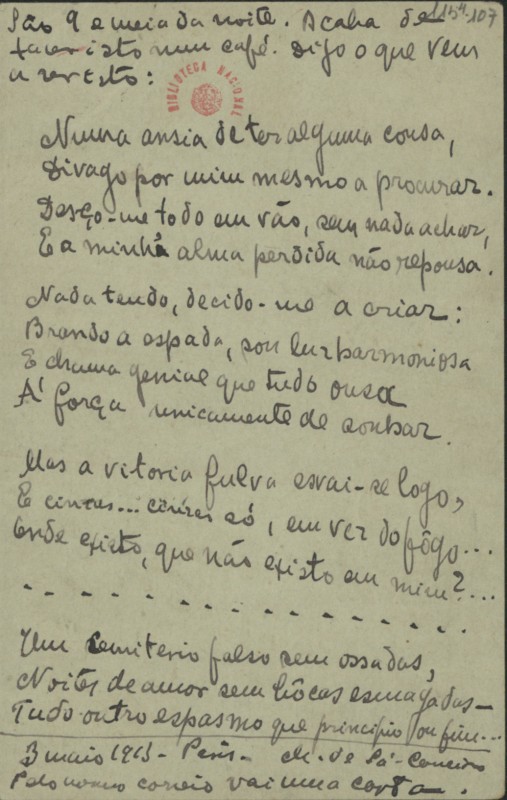 São 9 e meia da noite. Acaba de
115⁴-107
fazer isto num café. Digo o que vem
a resto:
BIBLIOTECA NACIONAL
Numa ansia de ter alguma cousa,
Divago por mim mesmo a procurar.
Desço-me todo em vão, sem nada achar,
E a minh'a alma perdida não repousa.
Nada tendo, decido-me a criar:
Brando a espada, sou luz harmoniosa
E chama genial que tudo ousa
Á força unicamente de sonhar.
Mas a vitoria fulva esvai-se logo,
E cinzas... cinzas só, em vez do fôgo...
Onde existo, que não existo em mim?...
- - - - - - - - - - - -
Um cemiterio falso sem ossadas,
Noites de amor sem bôcas esmagadas-
Tudo outro espasmo que principio ou fim...
3 maio 1913 - Paris - M. de Sá-Carneiro
Pelo mesmo correio vai uma carta.